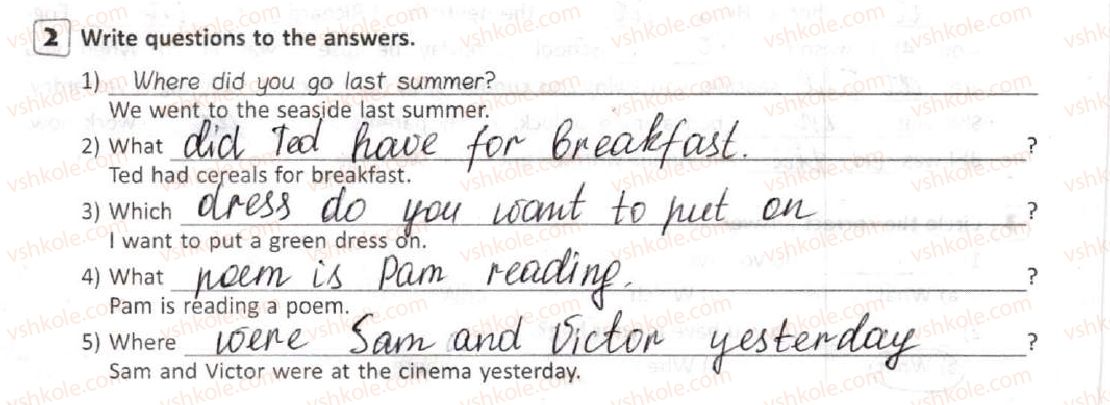 2 Write questions to the answers.
1) Where did you go last summer?
We went to the seaside last summer.
2) What did Ted have for breakfast. ?
Ted had cereals for breakfast.
3) Which dress do you want to put on ?
I want to put a green dress on.
4) What poem is Pam reading. ?
Pam is reading a poem.
5) Where were Sam and Victor yesterday ?
Sam and Victor were at the cinema yesterday.
vshkole.com